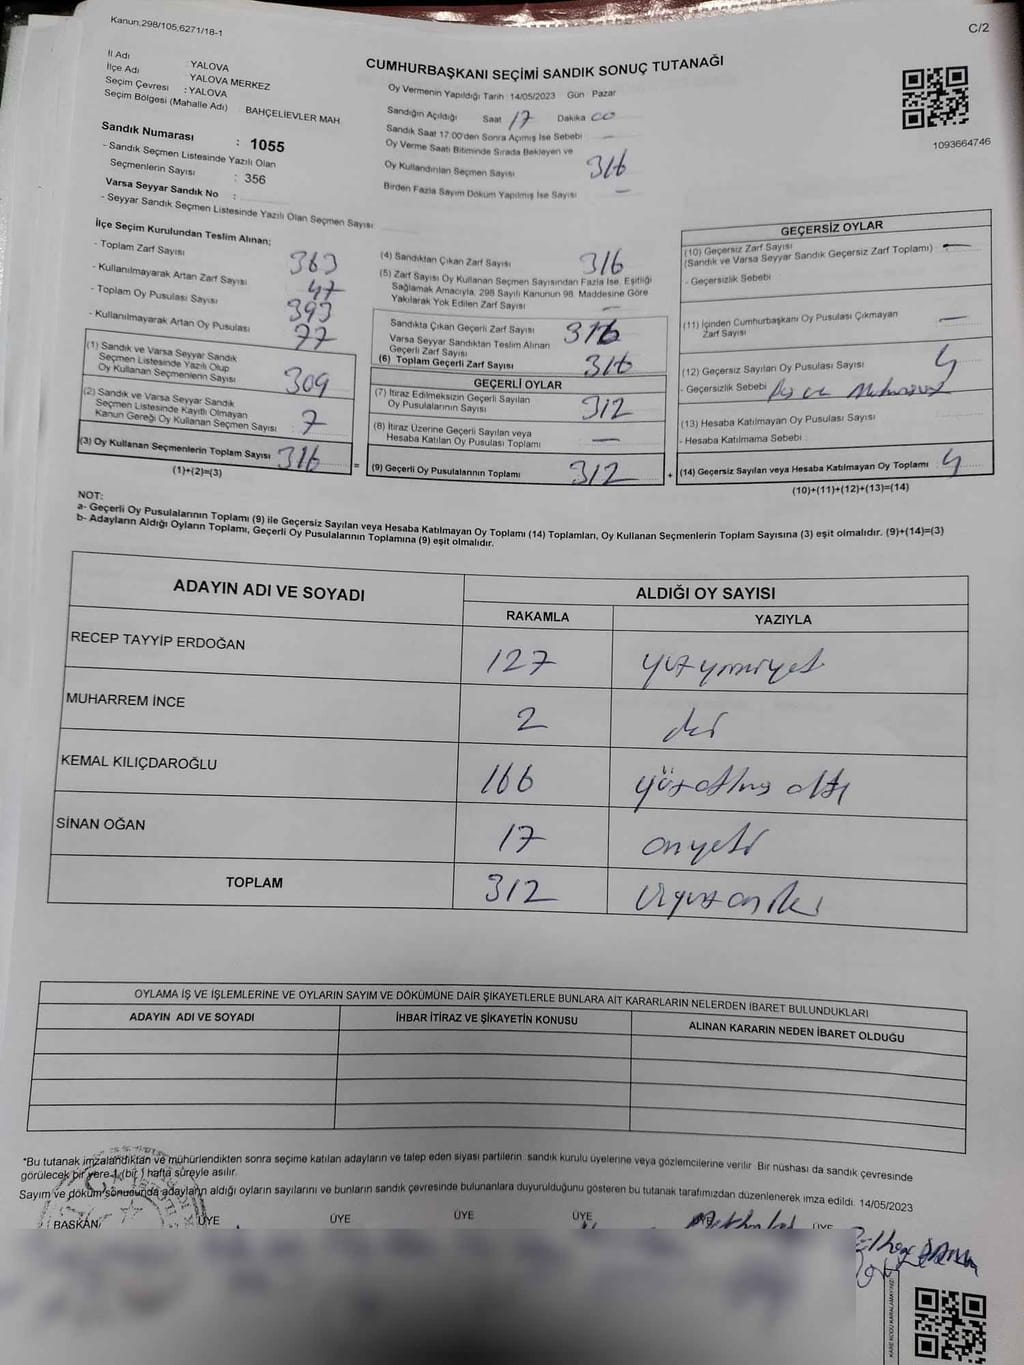 Kanun:298/105;6271/18-1
C/2
İl Adı : YALOVA
İlçe Adı : YALOVA MERKEZ
Seçim Çevresi : YALOVA
Seçim Bölgesi (Mahalle Adı) BAHÇELİEVLER MAH
Sandık Numarası : 1055
- Sandık Seçmen Listesinde Yazılı Olan
Seçmenlerin Sayısı : 356
Varsa Seyyar Sandık No :
- Seyyar Sandık Seçmen Listesinde Yazılı Olan Seçmen Sayısı
CUMHURBAŞKANI SEÇİMİ SANDIK SONUÇ TUTANAĞI
Oy Vermenin Yapıldığı Tarih : 14/05/2023 Gün Pazar
Sandığın Açıldığı Saat 17 Dakika 00
Sandık Saat 17:00'den Sonra Açımış İse Sebebi —
Oy Verme Saati Bitiminde Sırada Bekleyen ve
Oy Kullandırılan Seçmen Sayısı 316
Birden Fazla Sayım Döküm Yapılmış İse Sayısı —
1093664746
İlçe Seçim Kurulundan Teslim Alınan;
- Toplam Zarf Sayısı 363
- Kullanılmayarak Artan Zarf Sayısı 47
- Toplam Oy Pusulası Sayısı 393
- Kullanılmayarak Artan Oy Pusulası 77
(1) Sandık ve Varsa Seyyar Sandık
Seçmen Listesinde Yazılı Olup
Oy Kullanan Seçmenlerin Sayısı 309
(2) Sandık ve Varsa Seyyar Sandık
Seçmen Listesinde Kayıtlı Olmayan
Kanun Gereği Oy Kullanan Seçmen Sayısı 7
(3) Oy Kullanan Seçmenlerin Toplam Sayısı 316
(1)+(2)=(3)
(4) Sandıktan Çıkan Zarf Sayısı 316
(5) Zarf Sayısı Oy Kullanan Seçmen Sayısından Fazla İse, Eşitliği
Sağlamak Amacıyla, 298 Sayılı Kanunun 98. Maddesine Göre
Yakılarak Yok Edilen Zarf Sayısı —
Sandıkta Çıkan Geçerli Zarf Sayısı 316
Varsa Seyyar Sandıktan Teslim Alınan
Geçerli Zarf Sayısı
(6) Toplam Geçerli Zarf Sayısı 316
GEÇERLİ OYLAR
(7) İtiraz Edilmeksizin Geçerli Sayılan
Oy Pusulalarının Sayısı 312
(8) İtiraz Üzerine Geçerli Sayılan veya
Hesaba Katılan Oy Pusulası Toplamı —
= (9) Geçerli Oy Pusulalarının Toplamı 312 +
GEÇERSİZ OYLAR
(10) Geçersiz Zarf Sayısı
(Sandık ve Varsa Seyyar Sandık Geçersiz Zarf Toplamı) —
- Geçersizlik Sebebi :
(11) İçinden Cumhurbaşkanı Oy Pusulası Çıkmayan
Zarf Sayısı —
(12) Geçersiz Sayılan Oy Pusulası Sayısı 4
- Geçersizlik Sebebi
(13) Hesaba Katılmayan Oy Pusulası Sayısı
- Hesaba Katılmama Sebebi :
(14) Geçersiz Sayılan veya Hesaba Katılmayan Oy Toplamı 4
(10)+(11)+(12)+(13)=(14)
NOT:
a- Geçerli Oy Pusulalarının Toplamı (9) ile Geçersiz Sayılan veya Hesaba Katılmayan Oy Toplamı (14) Toplamları, Oy Kullanan Seçmenlerin Toplam Sayısına (3) eşit olmalıdır. (9)+(14)=(3)
b- Adayların Aldığı Oyların Toplamı, Geçerli Oy Pusulalarının Toplamına (9) eşit olmalıdır.
ADAYIN ADI VE SOYADI
ALDIĞI OY SAYISI
RAKAMLA YAZIYLA
RECEP TAYYİP ERDOĞAN 127 yüzyirmiyedi
MUHARREM İNCE 2 iki
KEMAL KILIÇDAROĞLU 166 yüzatmış altı
SİNAN OĞAN 17 onyedi
TOPLAM 312 üçyüzoniki
OYLAMA İŞ VE İŞLEMLERİNE VE OYLARIN SAYIM VE DÖKÜMÜNE DAİR ŞİKAYETLERLE BUNLARA AİT KARARLARIN NELERDEN İBARET BULUNDUKLARI
ADAYIN ADI VE SOYADI İHBAR İTİRAZ VE ŞİKAYETİN KONUSU ALINAN KARARIN NEDEN İBARET OLDUĞU
*Bu tutanak imzalandıktan ve mühürlendikten sonra seçime katılan adayların ve talep eden siyasi partilerin sandık kurulu üyelerine veya gözlemcilerine verilir. Bir nüshası da sandık çevresinde
görülecek bir yere 1 (bir) hafta süreyle asılır.
Sayım ve döküm sonucunda adayların aldığı oyların sayılarını ve bunların sandık çevresinde bulunanlara duyurulduğunu gösteren bu tutanak tarafımızdan düzenlenerek imza edildi. 14/05/2023
BAŞKAN ÜYE ÜYE ÜYE ÜYE ÜYE